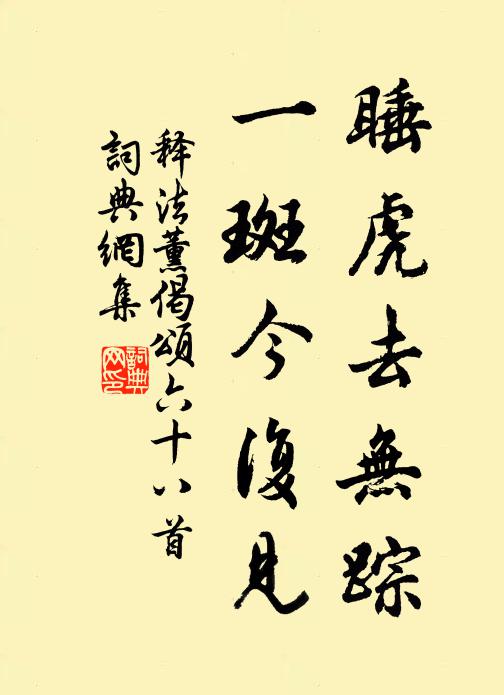 睡虎去無踪
一斑今復見
释法薰偈頌六十八首
詞典網集
詞典網印